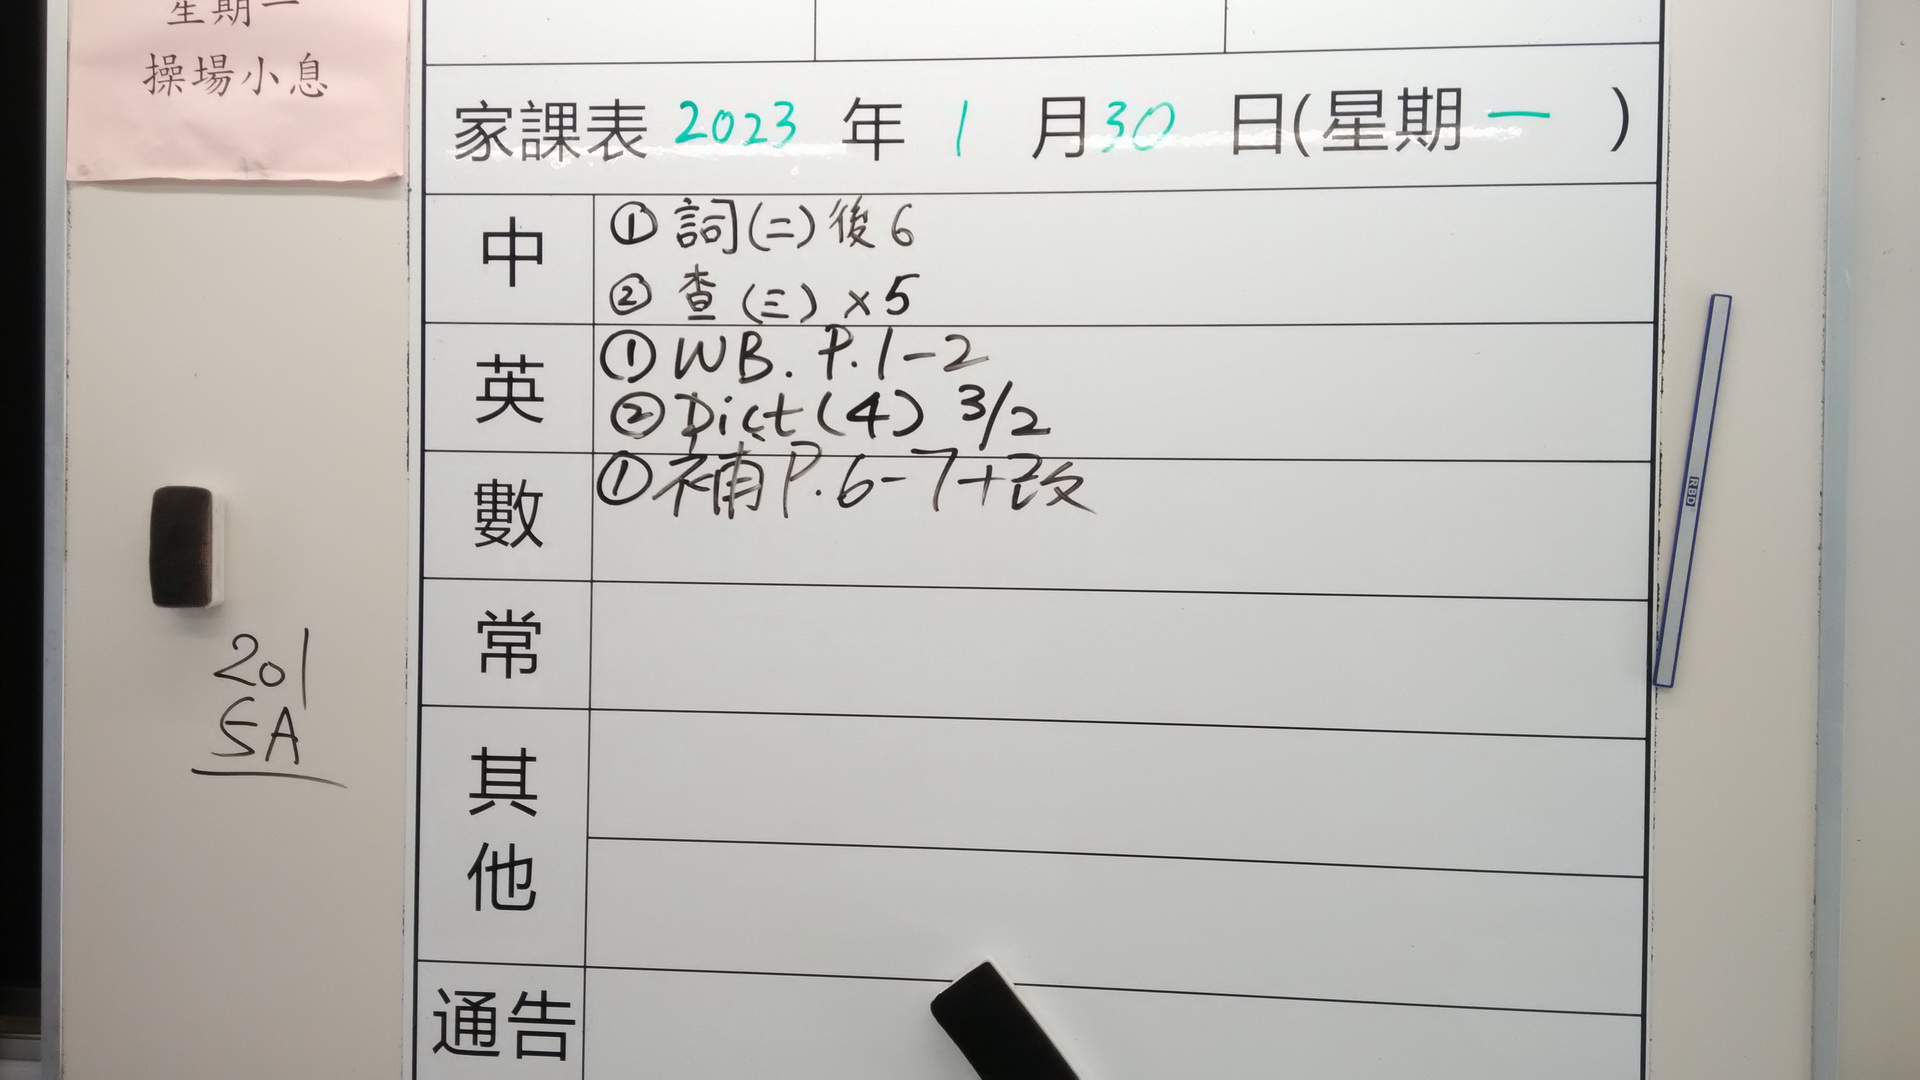 星期一
操場小息
家課表 2023 年 1 月 30 日(星期 一 )
中
① 詞(二)後6
② 查(三)×5
英
① WB. P.1-2
② Dict(4) 3/2
數
① 補P.6-7+改
常
其他
通告
201
5A
RBD